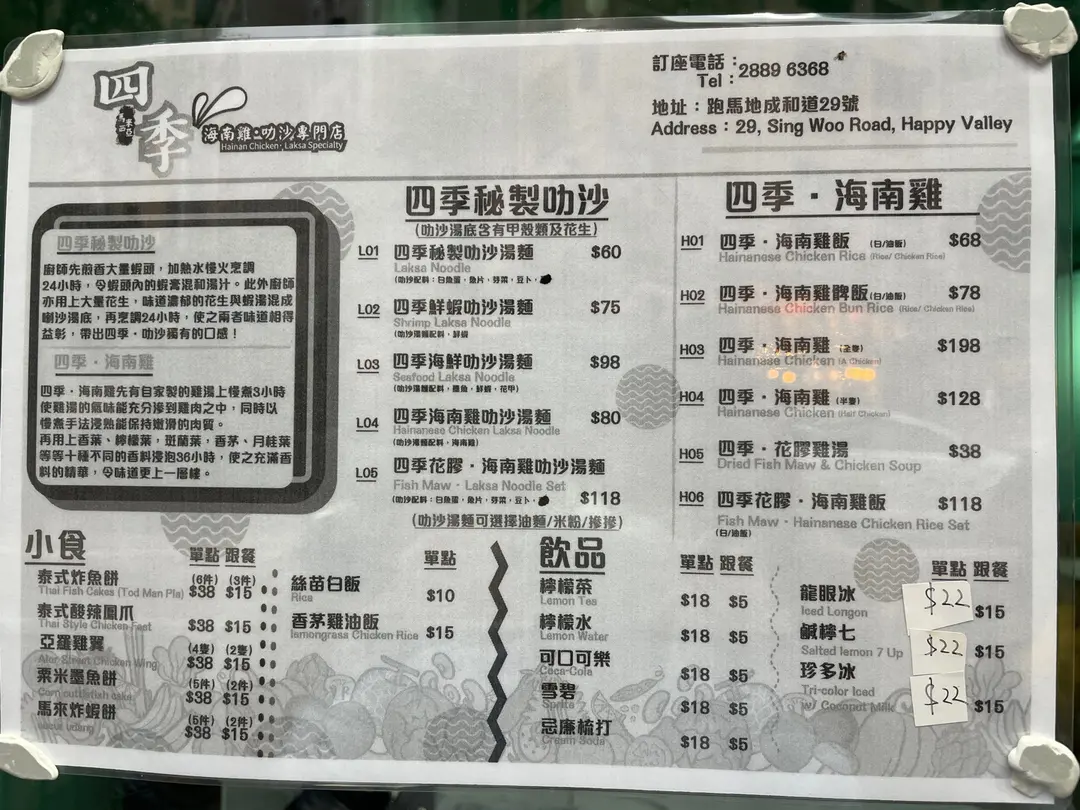 四季
馬來西亞
海南雞·叻沙專門店
Hainan Chicken·Laksa Specialty
訂座電話：2889 6368
Tel：
地址：跑馬地成和道29號
Address：29, Sing Woo Road, Happy Valley
四季秘製叻沙
廚師先煎香大量蝦頭，加熱水慢火烹調
24小時，令蝦頭內的蝦膏混和湯汁。此外廚師
亦用上大量花生，味道濃郁的花生與蝦湯混成
喇沙湯底，再烹調24小時，使之兩者味道相得
益彰，帶出四季·叻沙獨有的口感！
四季·海南雞
四季·海南雞先有自家製的雞湯上慢煮3小時
使雞湯的氣味能充分滲到雞肉之中，同時以
慢煮手法浸熟能保持嫩滑的肉質。
再用上香葉、檸檬葉，斑蘭葉，香茅、月桂葉
等等十種不同的香料浸泡36小時，使之充滿香
料的精華，令味道更上一層樓。
四季秘製叻沙
(叻沙湯底含有甲殼類及花生)
L01 四季秘製叻沙湯麵 $60
Laksa Noodle
(叻沙湯麵配料：白魚蛋，魚片，芽菜，豆卜，
L02 四季鮮蝦叻沙湯麵 $75
Shrimp Laksa Noodle
(叻沙湯麵配料，鮮蝦
L03 四季海鮮叻沙湯麵 $98
Seafood Laksa Noodle
L04 四季海南雞叻沙湯麵 $80
Hainanese Chicken Laksa Noodle
(叻沙湯麵配料，海南雞)
L05 四季花膠·海南雞叻沙湯麵
Fish Maw·Laksa Noodle Set
(叻沙湯麵配料：白魚蛋，魚片，芽菜，豆卜， $118
(叻沙湯麵可選擇油麵/米粉/摻摻)
四季·海南雞
H01 四季·海南雞飯 (白/油飯) $68
Hainanese Chicken Rice (Rice/ Chicken Rice)
H02 四季·海南雞髀飯(白/油飯) $78
Hainanese Chicken Bun Rice (Rice/ Chicken Rice)
H03 四季·海南雞 (全隻) $198
Hainanese Chicken (A Chicken)
H04 四季·海南雞 (半隻) $128
Hainanese Chicken (Half Chicken)
H05 四季·花膠雞湯 $38
Dried Fish Maw & Chicken Soup
H06 四季花膠·海南雞飯 $118
Fish Maw·Hainanese Chicken Rice Set
(白/油飯)
小食 單點 跟餐
泰式炸魚餅 (6件) (3件)
Thai Fish Cakes (Tod Man Pla) $38 $15
泰式酸辣鳳爪
Thai Style Chicken Feet $38 $15
亞羅雞翼 (4隻) (2隻)
Alor Street Chicken Wing $38 $15
粟米墨魚餅 (5件) (2件)
Corn cuttlefish cake $38 $15
馬來炸蝦餅 (5件) (2件)
$38 $15
單點
絲苗白飯 $10
Rice
香茅雞油飯 $15
lemongrass Chicken Rice
飲品 單點 跟餐
檸檬茶 $18 $5
Lemon Tea
檸檬水 $18 $5
Lemon Water
可口可樂 $18 $5
Coca-Cola
雪碧 $18 $5
Sprite
忌廉梳打 $18 $5
Cream Soda
單點 跟餐
龍眼冰 $22 $15
Iced Longon
鹹檸七 $22 $15
Salted lemon 7 Up
珍多冰 $22 $15
Tri-color Iced
w/ Coconut Milk